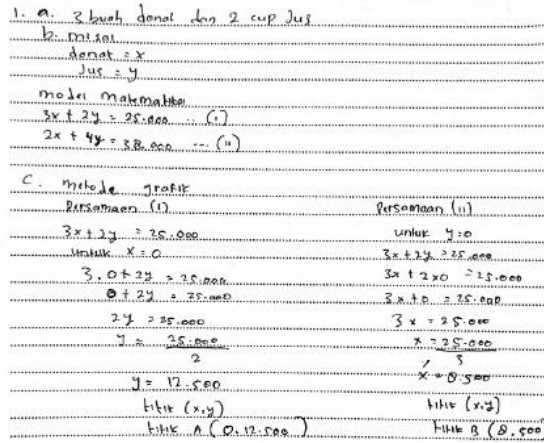 1. a. 3 buah donat dan 2 cup Jus
b. misal
donat = x
Jus = y
model matematika
3x + 2y = 25.000 ... (i)
2x + 4y = 38.000 ... (ii)
C. metode grafik
Persamaan (i)
3x + 2y = 25.000
untuk x = 0
3.0 + 2y = 25.000
0 + 2y = 25.000
2y = 25.000
y = 25.000
2
y = 12.500
titik (x,y)
titik A (0.12.500)
Persamaan (ii)
untuk y = 0
3x + 2y = 25.000
3x + 2x0 = 25.000
3x + 0 = 25.000
3x = 25.000
x = 25.000
3
x = 8.500
titik (x,y)
titik B (8.500